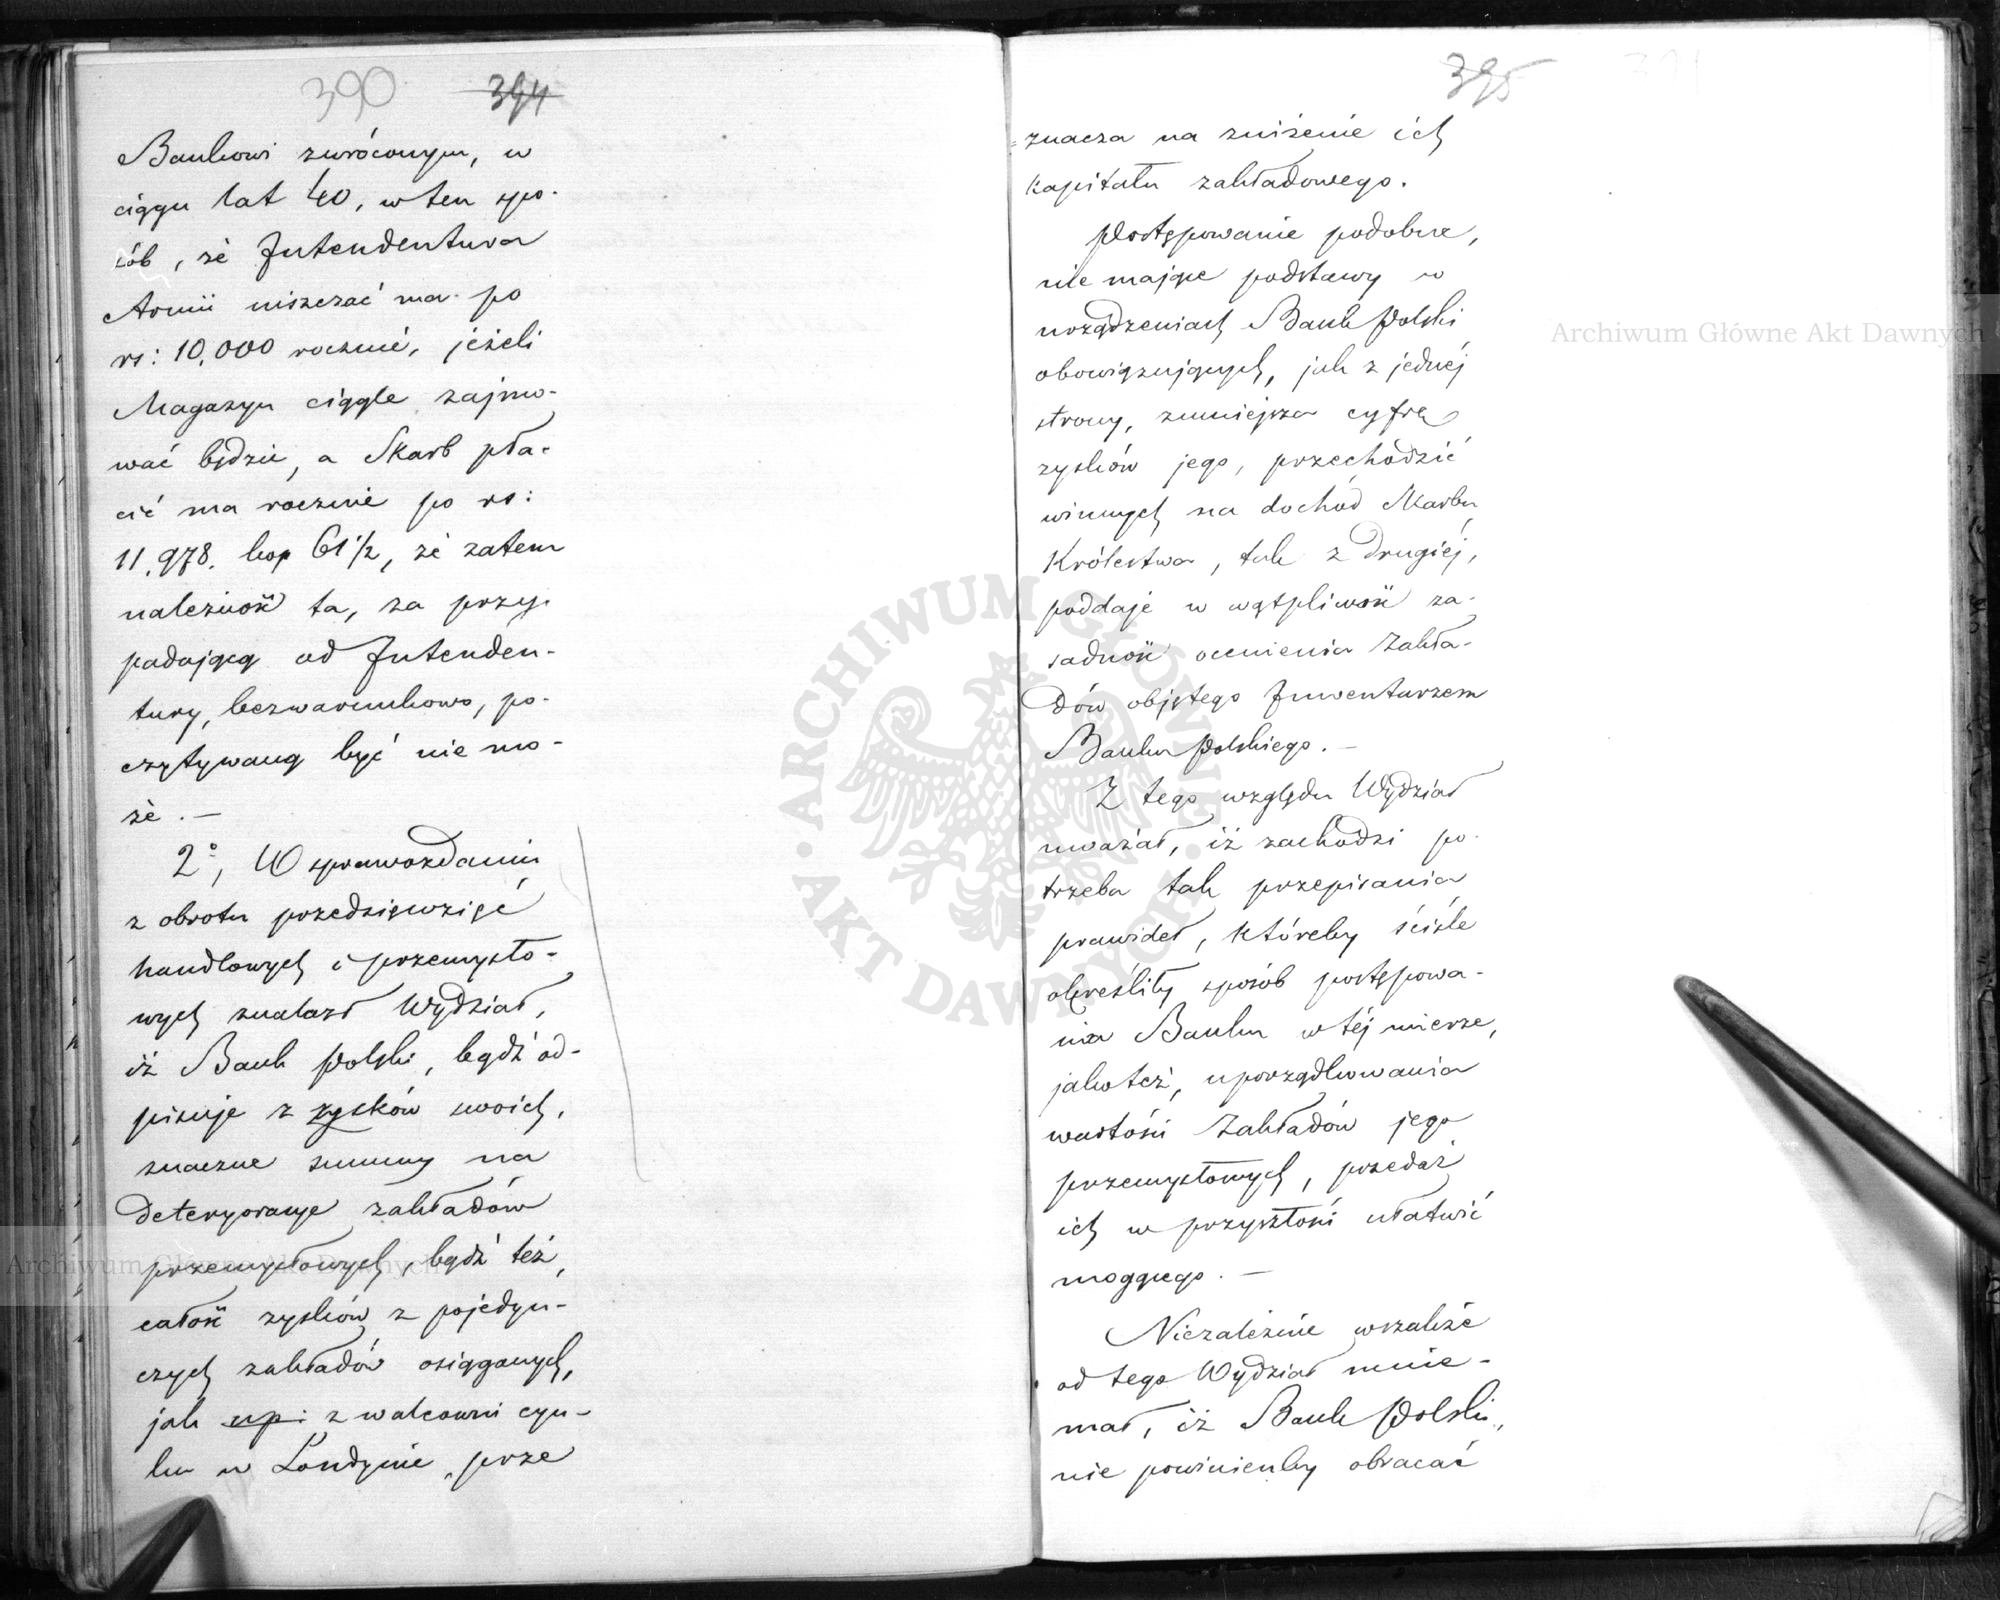 390 394
Bankowi zwróconym, w
ciągu lat 40, w ten spo-
sób, że Intendentura
Armii uiszczać ma po
rs: 10,000 rocznie, jeżeli
Magazyn ciągle zajmo-
wać będzie, a Skarb pła-
cić ma rocznie po rs:
11,978. kop 61 1/2, że zatem
należność ta, za przy-
padającą od Intenden-
tury, bezwarunkowo, po-
czytywaną być nie mo-
że. —
2°, W sprawozdaniu
z obrotu przedsięwzięć
handlowych i przemysło-
wych znalazł Wydział,
iż Bank Polski, bądź od-
pisuje z zysków swoich,
znaczne summy na
deteryoracye zakładów
przemysłowych, bądź też,
całość zysków z pojedyn-
czych zakładów osiąganych,
jak np: z walcowni cyn-
ku w Londynie, prze
395
=znacza na zniżenie ich
kapitału zakładowego.
Postępowanie podobne,
nie mające podstawy w
urządzeniach Bank Polski
obowiązujących, jak z jednéj
strony, zmniejsza cyfrę
zysków jego, przechodzić
winnych na dochód Skarbu
Królestwa, tak z drugiéj,
poddaje w wątpliwość za-
sadność ocenienia Zakła-
dów objętego Inwentarzem
Banku Polskiego. —
Z tego względu Wydział
uważał, iż zachodzi po-
trzeba tak przepisania
prawideł, któreby ściśle
określiły sposób postępowa-
nia Banku w téj mierze,
jakoteż, uporządkowania
wartości Zakładów jego
przemysłowych, przedaż
ich w przyszłości ułatwić
mogącego. —
Niezależnie wszakże
od tego Wydział mnie-
mał, iż Bank Polski,
nie powinienby obracać
Archiwum Główne Akt Dawnych
Archiwum Główne Akt Dawnych
ARCHIWUM GŁÓWNE • AKT DAWNYCH •